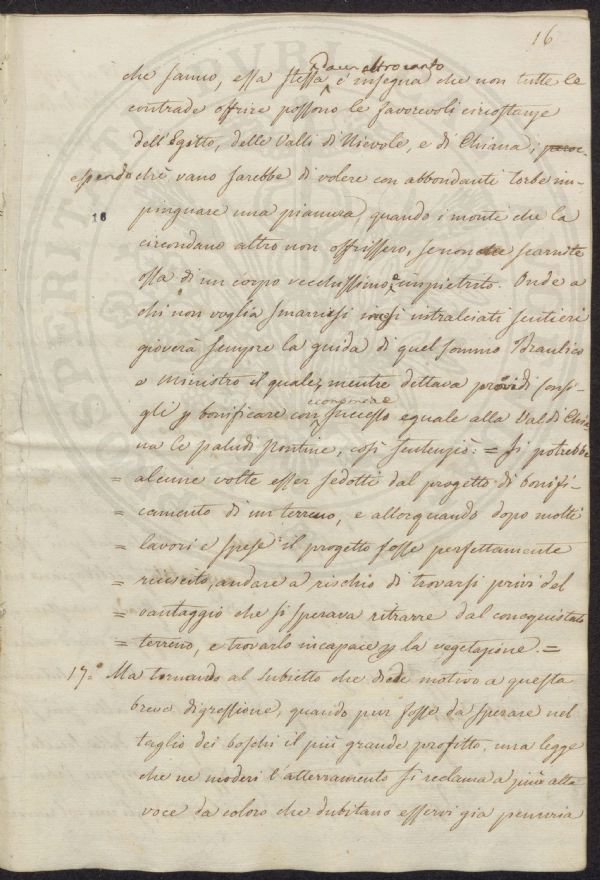 16
da un altro canto
che sanno, essa stessa c'insegna che non tutte le
contrade offrire possono le favorevoli circostanze
dell'Egitto, delle Valli di Nievole, e di Chiana;
essendoché vano sarebbe di volere con abbondanti torbe im-
18
pinguare una pianura, quando i monti che la
circondano altro non offrissero, senon scarnite
ossa di un corpo vecchissimo e impietrito. Onde a
chi non voglia smarrirsi in sì intralciati sentieri
gioverà sempre la guida di quel sommo Idraulico
e ministro il quale, mentre dettava providi consi-
economico e
gli p bonificare con successo eguale alla Val di Chia
na le paludi Pontine, così sentenziò: = Si potrebbe
= alcune volte esser sedotti dal progetto di bonifi-
= camento di un terreno, e allorquando dopo molti
= lavori e spese il progetto fosse perfettamente
= riuscito, andare a rischio di trovarsi privi del
= vantaggio che si sperava ritrarre dal conquistato
= terreno, e trovarlo incapace p la vegetazione. =
17.° Ma tornando al subietto che diede motivo a questa
breve digressione, quando pur fosse da sperare nel
taglio dei boschi il più grande profitto, una legge
che ne moderi l'atterramento si reclama a più alta
voce da coloro che dubitano esservi già penuria